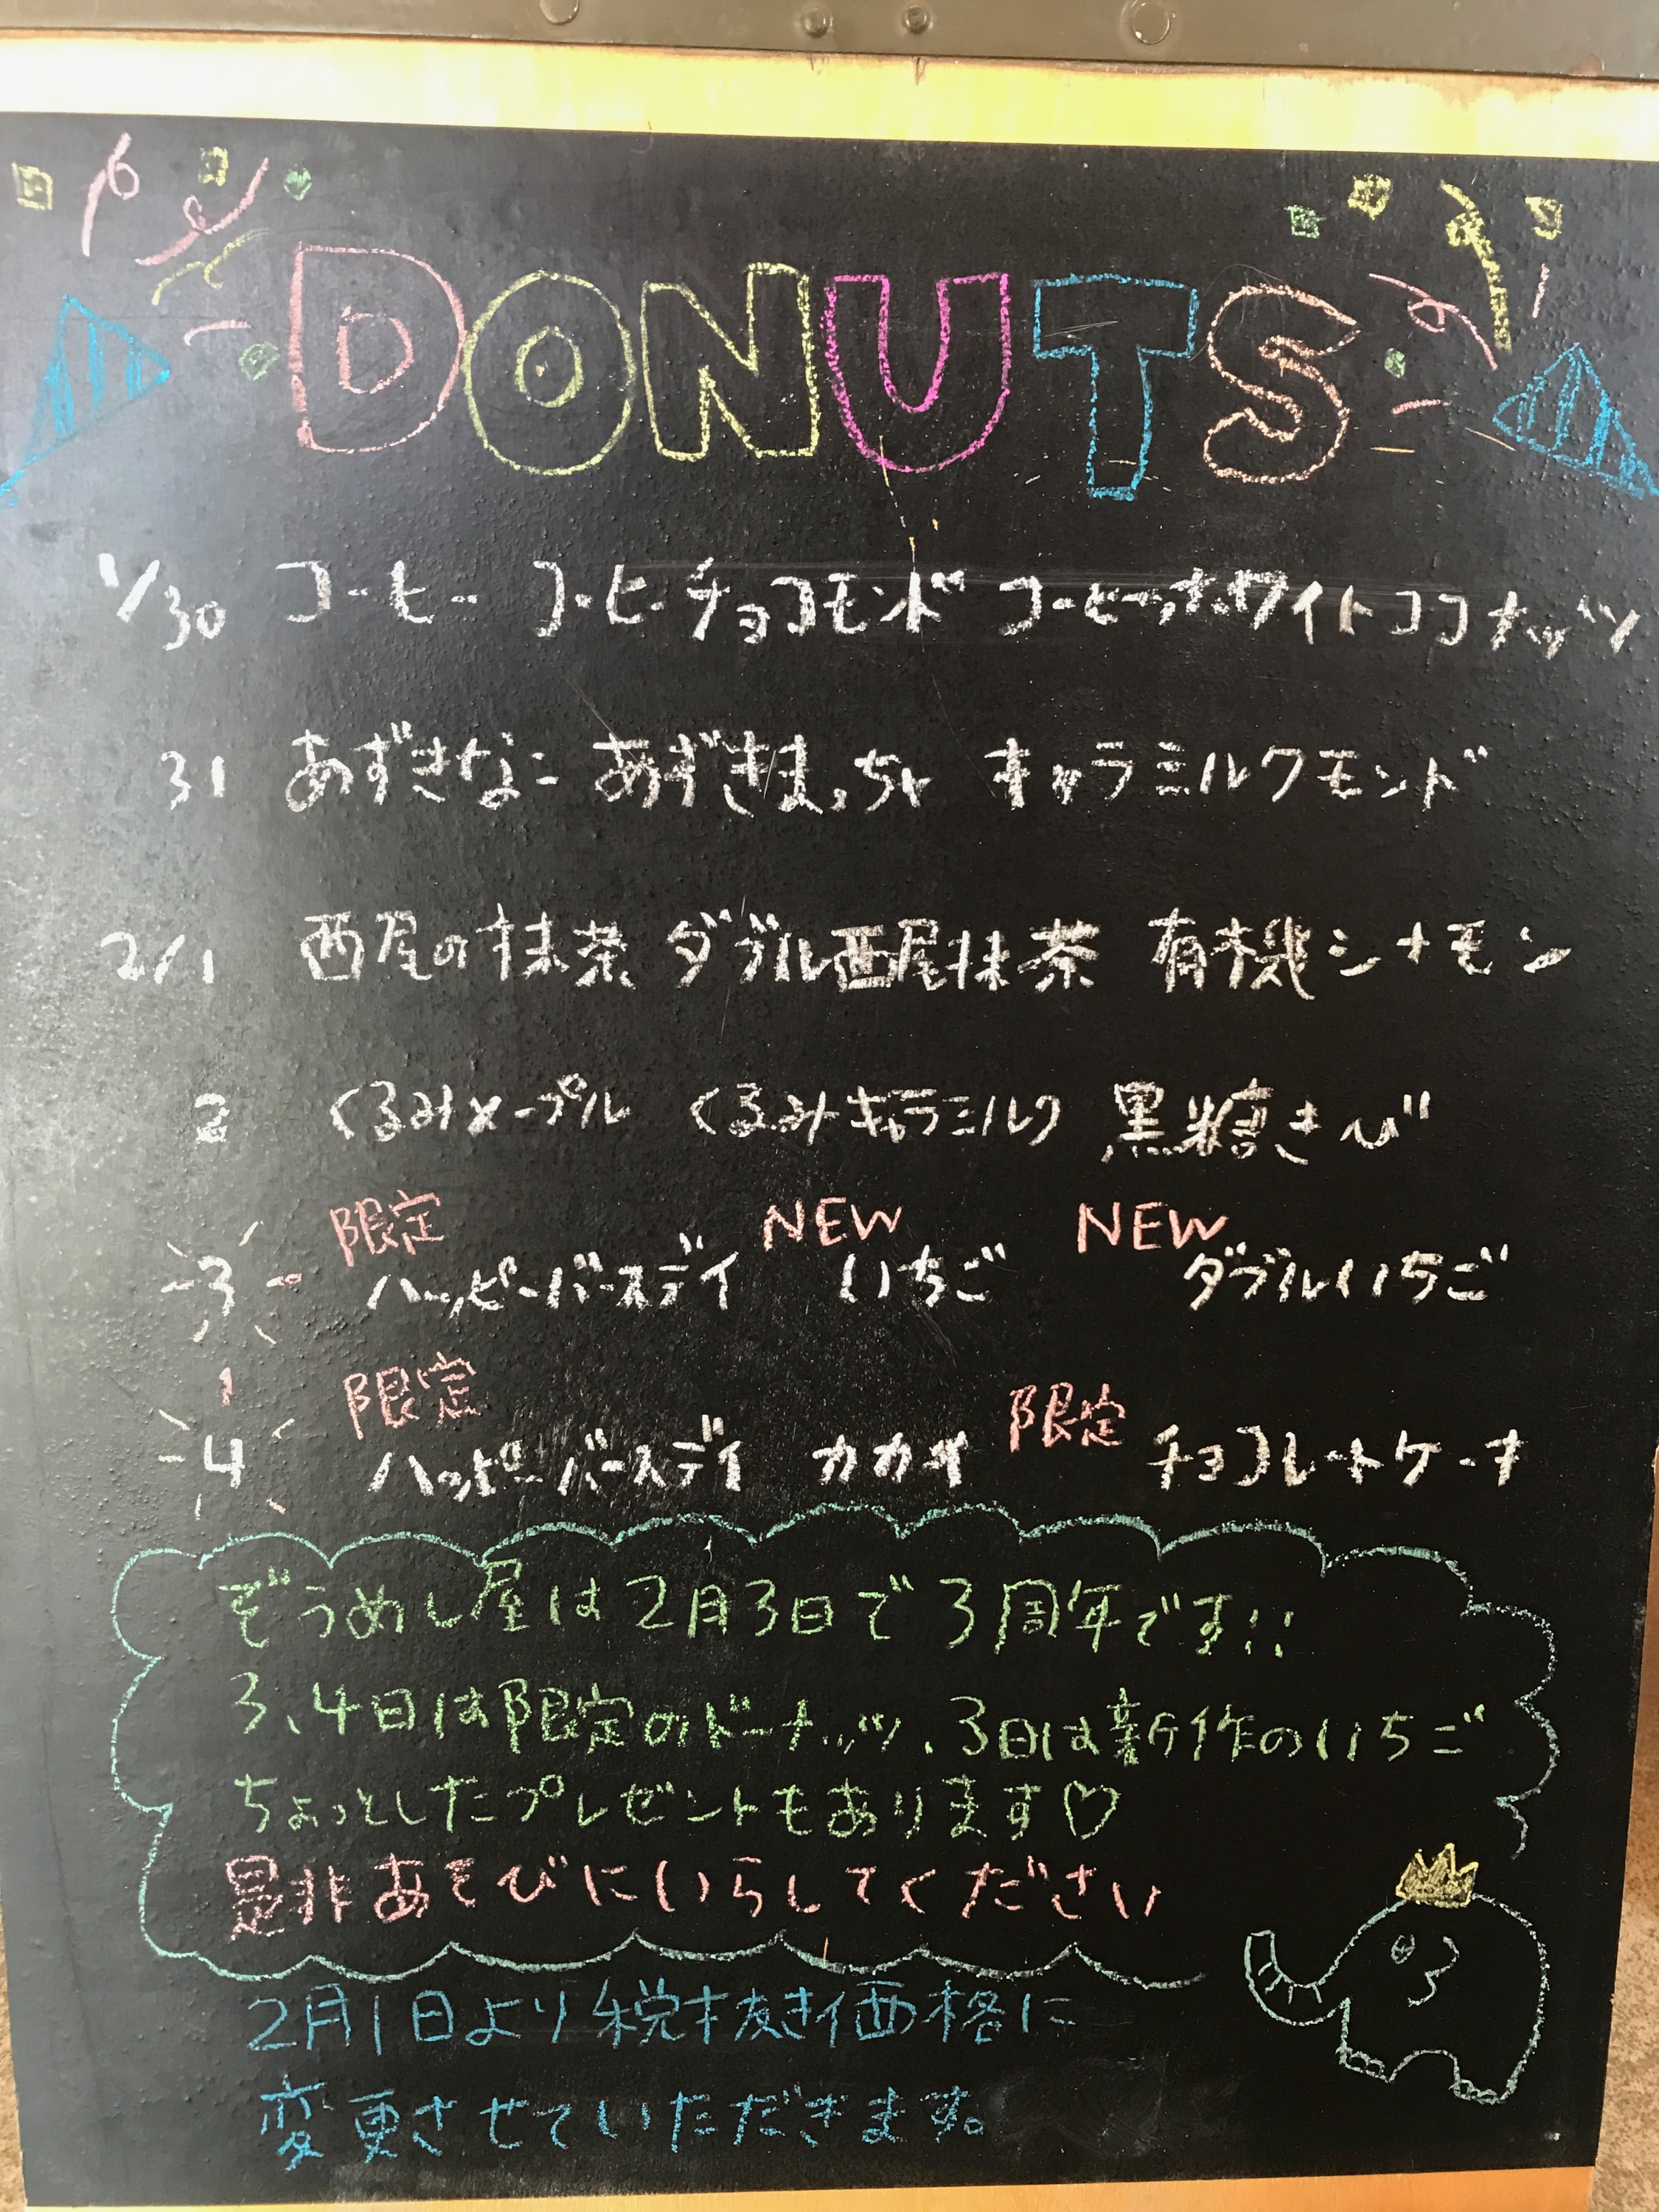 DONUTS
1/30 コーヒー コーヒーチョコモンド コーヒーホワイトココナッツ
31 あずきなこ あずきまっちゃ キャラミルクモンド
2/1 西尾の抹茶 ダブル西尾抹茶 有機シナモン
2 くるみメープル くるみキャラミルク 黒糖きび
限定 NEW NEW
3 ハッピーバースデイ いちご ダブルいちご
限定 限定
4 ハッピーバースデイ カカオ チョコレートケーキ
ぞうめし屋は2月3日で3周年です!!
3、4日は限定のドーナッツ、3日は新作のいちご
ちょっとしたプレゼントもあります♡
是非あそびにいらしてください
2月1日より税抜き価格に
変更させていただきます。